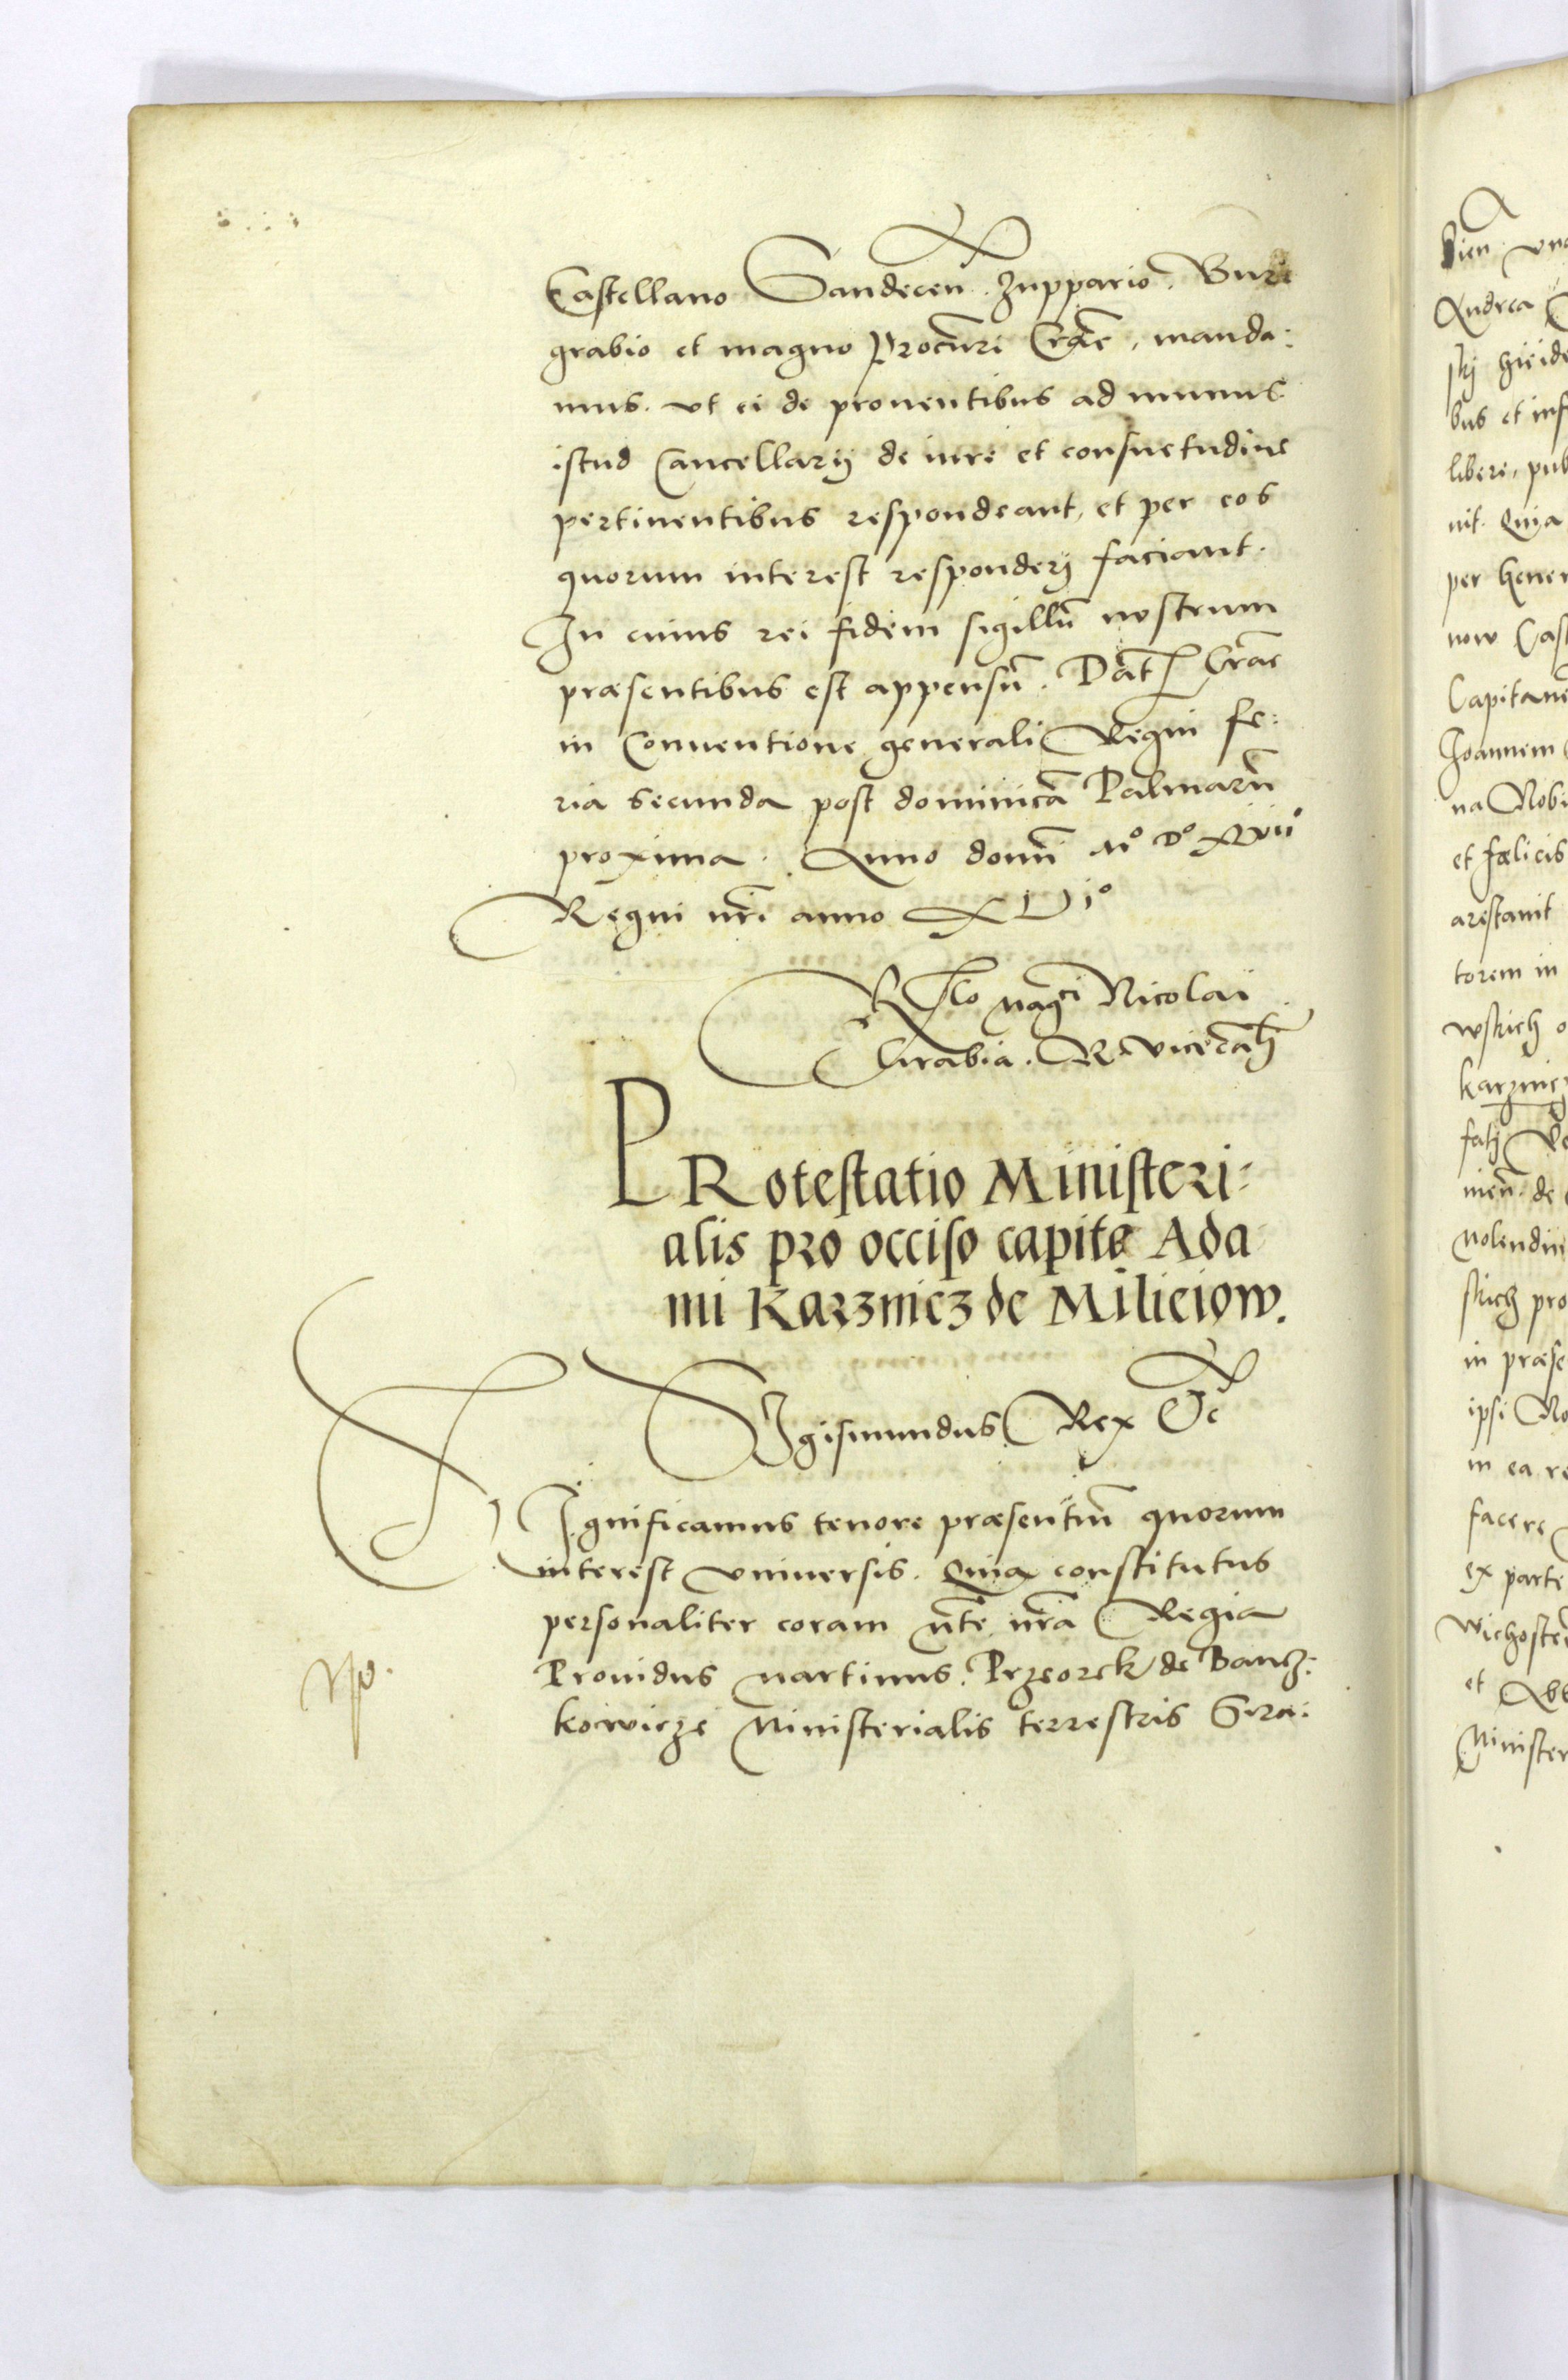 Castellano Sandecen̄. Zuppario. Burc
grabio et magno Procur̄ri Crac̄, manda:
mus. vt ei de prouentibus ad munus
istud Cancellarij de iure et consuetudine
pertinentibus respondeant, et per eos
quorum interest responderj faciant.
In cuius rei fidem sigillū nostrum
præsentibus est appensū. Dat̄ Crac̄
in Conuentione generali Regni fe:
ria secunda post dominicā Palmarū
proxima. Anno domī Mº Dº XXVIIº
Regni nr̄i anno XXIº
Relº Magci Nicolai
R. Vicecan̄
PRotestatio Ministeri:
alis pro occiso capite Ada
mi Karznicz de Milieiow.
SIgismundus Rex &c̄
SIgnificamus tenore præsentiū quorum
interest vniuersis. Quia constitutus
personaliter coram Mte nr̄a Regia
Prouidus Martinus. Przeorek de Banch:
kowicze Ministerialis terrestris Sira:
Kien: vna
Andrea
skj
bus et inf
libere, pub
uit. Quia
per Gener
now Cast
Capitane
Joannem
na Nobi
et fœlicis
arestauit
torem in
wskich
Karznicz
men̄. de
Molendin
skich pro
in præse
ipsi No
in ea re
facere
ex parte
Wichosten̄
et
Minister